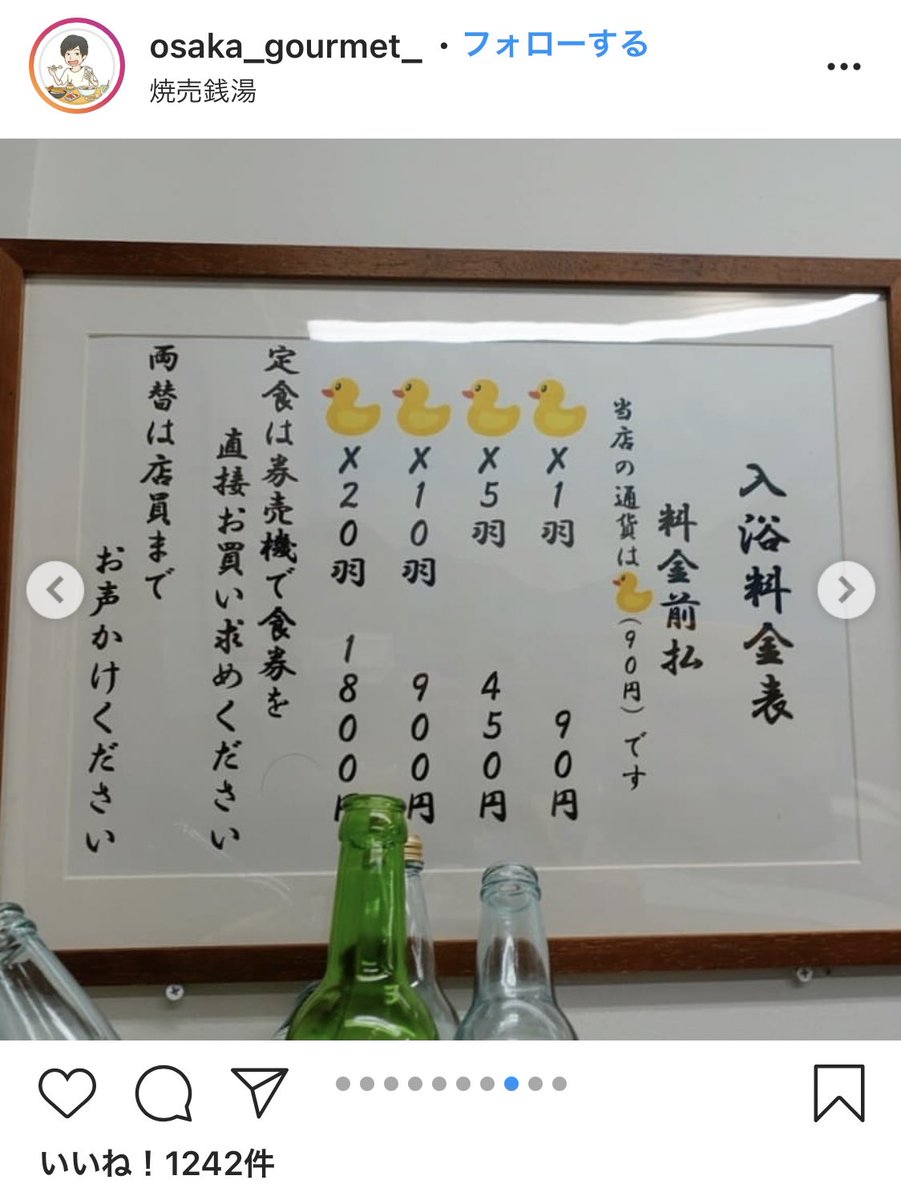 osaka_gourmet_ • フォローする
焼売銭湯
入浴料金表
料金前払
当店の通貨は(90円)です
X1羽 90円
X5羽 450円
X10羽 900円
X20羽 1800円
定食は券売機で食券を
直接お買い求めください
両替は店員まで
お声かけください
いいね!1242件